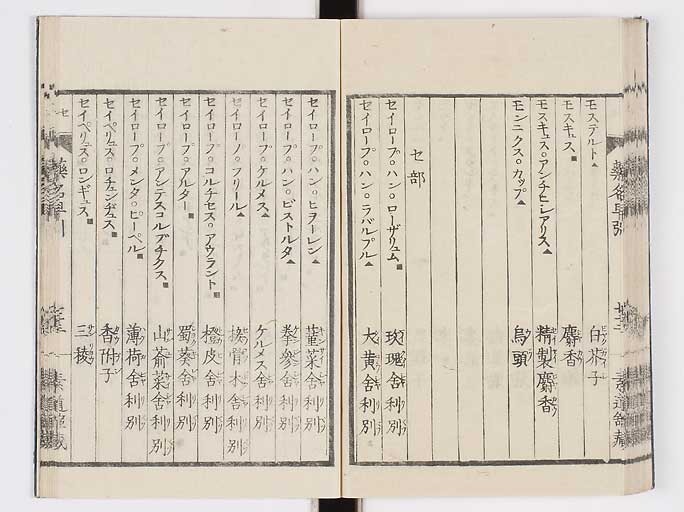 モステルト▲ 白芥子
モスキュス■ 麝香
モスキュス○アンチヒレアリス▲ 精製麝香
モンニクス○カップ▲ 烏頭
セ部
セイロープ○ハン○ローザリュム■ 玫瑰舍利別
セイロープ○ハン○ラバルブル▲ 大黄舍利別
セイロープ○ハン○ヒヲーレン▲ 菫菜舍利別
セイロープ○ハン○ビストルタ▲ 拳參舍利別
セイロープ○ケルメス▲ ケルメス舍利別
セイロープ○フリール▲ 接骨木舍利別
セイロープ○コルチセス○アウラント■ 橙皮舍利別
セイロープ○アルター■ 蜀葵舍利別
セイロープ○アンテスコルブチクス■ 山萮菜舍利別
セイロープ○メンタ○ピーペル■ 薄荷舍利別
セイペリュス○ロチュンヂュス■ 香附子
セイペリュス○ロンギュス■ 三稜